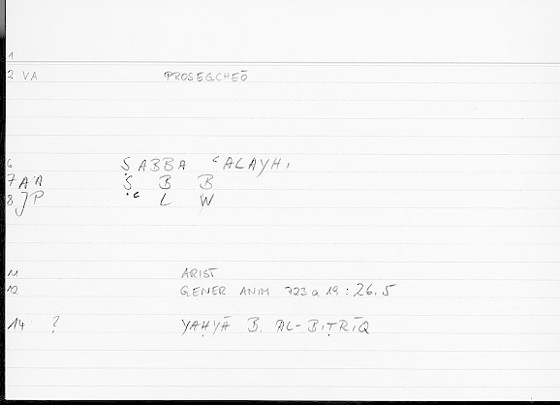 1
2 VA PROSEGCHEŌ
6 ṢABBA ʿALAYHI
7 AA Ṣ B B
8 JP ʿ L W
11 ARIST
12 GENER ANIM 723 a 19 : 26.5
14 ? YAḤYĀ B. AL-BIṬRĪQ